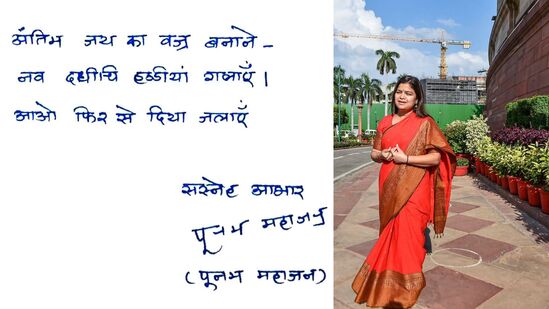 अंतिम जय का वज्र बनाने –
नव दधीचि हड्डीयां गलाएँ।
आओ फिर से दिया जलाएँ
सस्नेह आभार
पूनम महाजन
(पूनम महाजन)